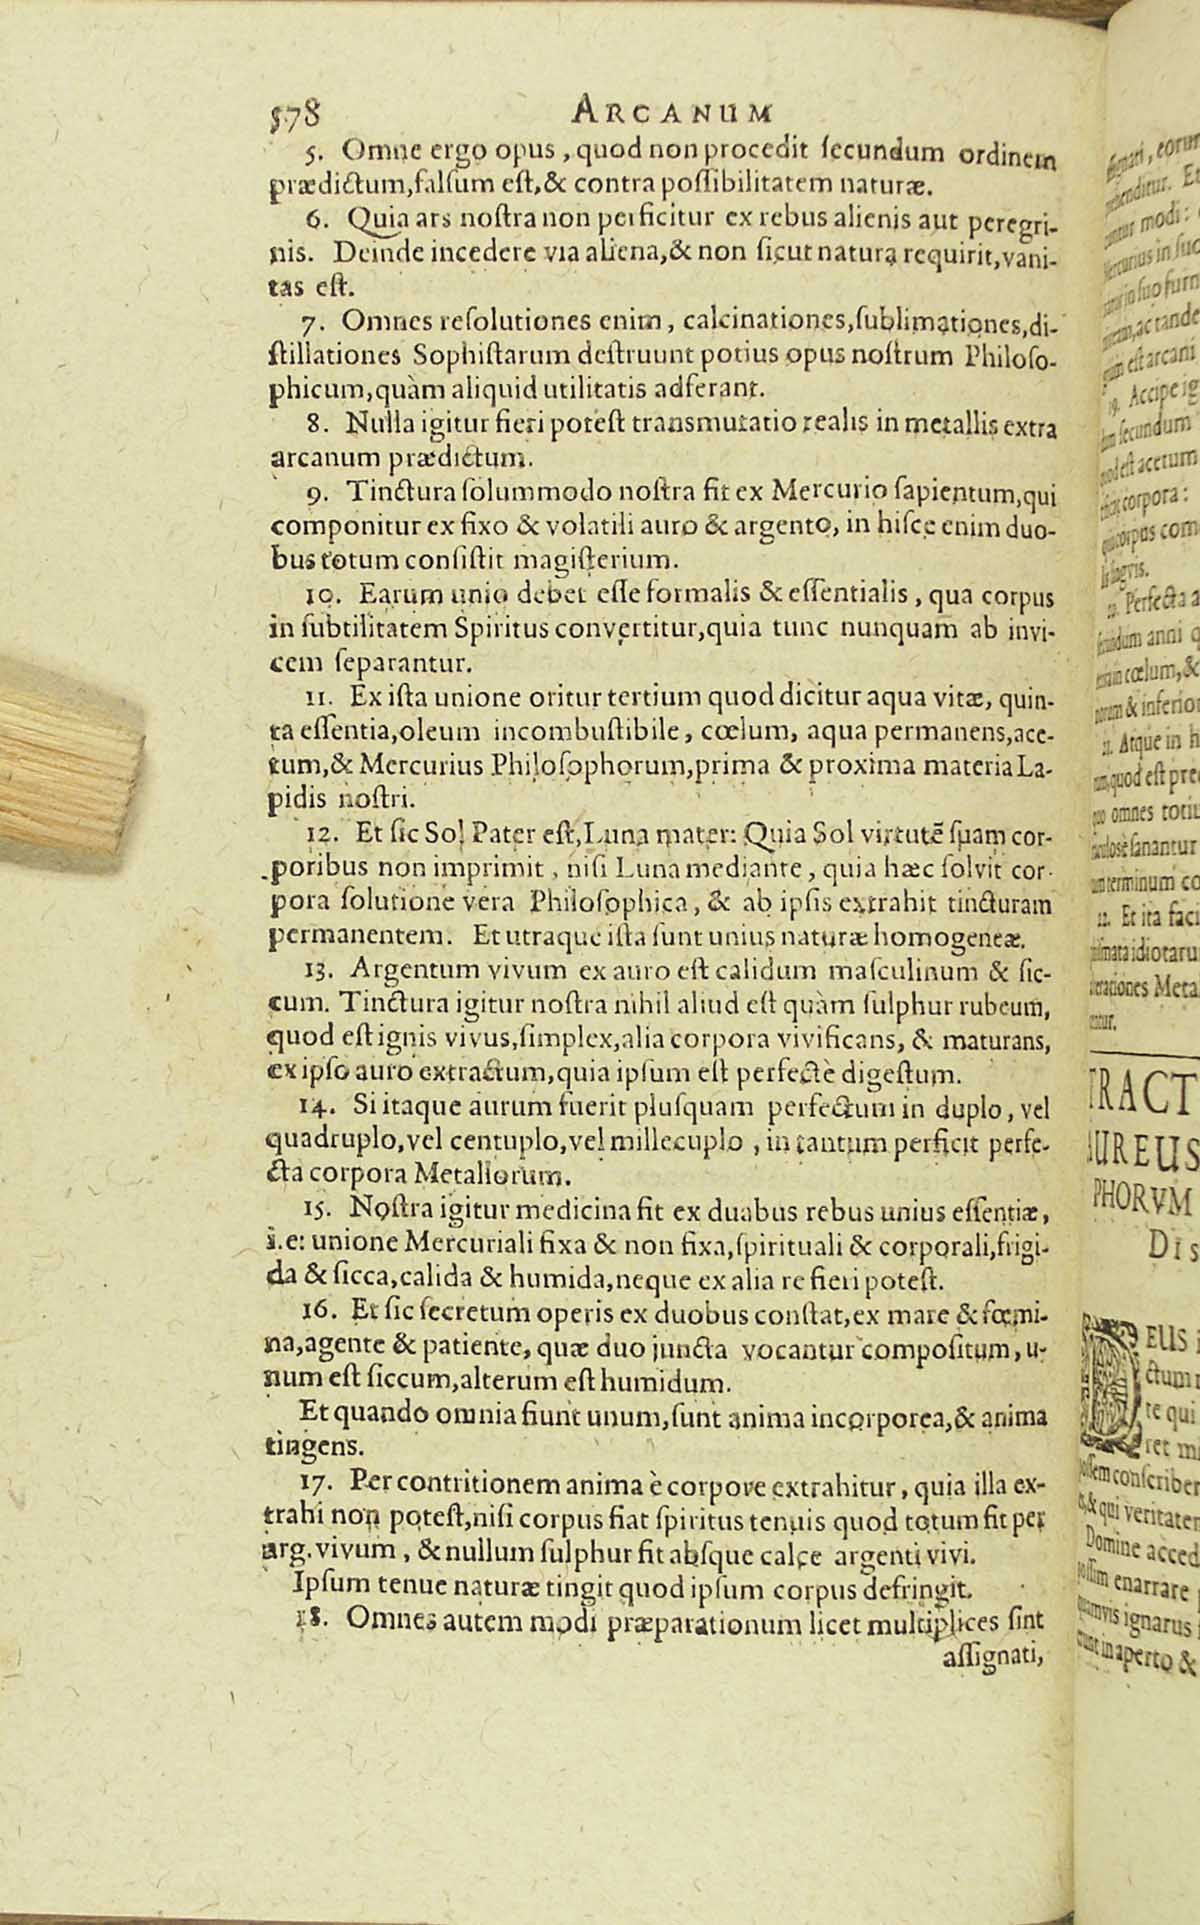 578 ARCANUM
5. Omne ergo opus, quod non procedit ſecundum ordinem
prædictum, falſum eſt, & contra poſſibilitatem naturæ.
6. Quia ars noſtra non perficitur ex rebus alienis aut peregri-
nis. Deinde incedere via aliena, & non ſicut natura requirit, vani-
tas eſt.
7. Omnes reſolutiones enim, calcinationes, ſublimationes, di-
ſtillationes Sophiſtarum deſtruunt potius opus noſtrum Philoſo-
phicum, quàm aliquid utilitatis adferant.
8. Nulla igitur fieri poteſt transmutatio realis in metallis extra
arcanum prædictum.
9. Tinctura ſolummodo noſtra fit ex Mercurio ſapientum, qui
componitur ex fixo & volatili auro & argento, in hiſce enim duo-
bus totum conſiſtit magiſterium.
10. Earum unio debet eſſe formalis & eſſentialis, qua corpus
in ſubtilitatem Spiritus convertitur, quia tunc nunquam ab invi-
cem ſeparantur.
11. Ex iſta unione oritur tertium quod dicitur aqua vitæ, quin-
ta eſſentia, oleum incombuſtibile, cœlum, aqua permanens, ace-
tum, & Mercurius Philoſophorum, prima & proxima materia La-
pidis noſtri.
12. Et ſic Sol Pater eſt, Luna mater: Quia Sol virtutẽ ſuam cor-
poribus non imprimit, niſi Luna mediante, quia hæc ſolvit cor-
pora ſolutione vera Philoſophica, & ab ipſis extrahit tincturam
permanentem. Et utraque iſta ſunt unius naturæ homogeneæ.
13. Argentum vivum ex auro eſt calidum maſculinum & ſic-
cum. Tinctura igitur noſtra nihil aliud eſt quàm ſulphur rubeum,
quod eſt ignis vivus, ſimplex, alia corpora vivificans, & maturans,
ex ipſo auro extractum, quia ipſum eſt perfectè digeſtum.
14. Si itaque aurum fuerit pluſquam perfectum in duplo, vel
quadruplo, vel centuplo, vel millecuplo, in tantum perficit perfe-
cta corpora Metallorum.
15. Noſtra igitur medicina fit ex duabus rebus unius eſſentiæ,
i.e: unione Mercuriali fixa & non fixa, ſpirituali & corporali, frigi-
da & ſicca, calida & humida, neque ex alia re fieri poteſt.
16. Et ſic ſecretum operis ex duobus conſtat, ex mare & fœmi-
na, agente & patiente, quæ duo juncta vocantur compoſitum, u-
num eſt ſiccum, alterum eſt humidum.
Et quando omnia fiunt unum, ſunt anima incorporea, & anima
tingens.
17. Per contritionem anima è corpore extrahitur, quia illa ex-
trahi non poteſt, niſi corpus fiat ſpiritus tenuis quod totum fit per
arg. vivum, & nullum ſulphur fit abſque calce argenti vivi.
Ipſum tenue naturæ tingit quod ipſum corpus defringit.
18. Omnes autem modi præparationum licet multiplices ſint
aſſignati,
eorum
Et
modi:
Mercurius in ſuo
in ſuo
ac tande
eſt arcani
19. Accipe ig
ſecundum
eſt acetum
corpora:
corpus com
Perfecta a
anni q
cœlum, &
& inferior
21. Atque in h
quod eſt
omnes totiu
ſanantur
terminum co
22. Et ita faci
idiotarum
Meta
TRACT
AUREUS
PHORVM
Dis
DEUS i
ctum
te qui
ret mi
conſcriber
& qui veritatem
Domine acced
enarrare
ignarus
in aperto &